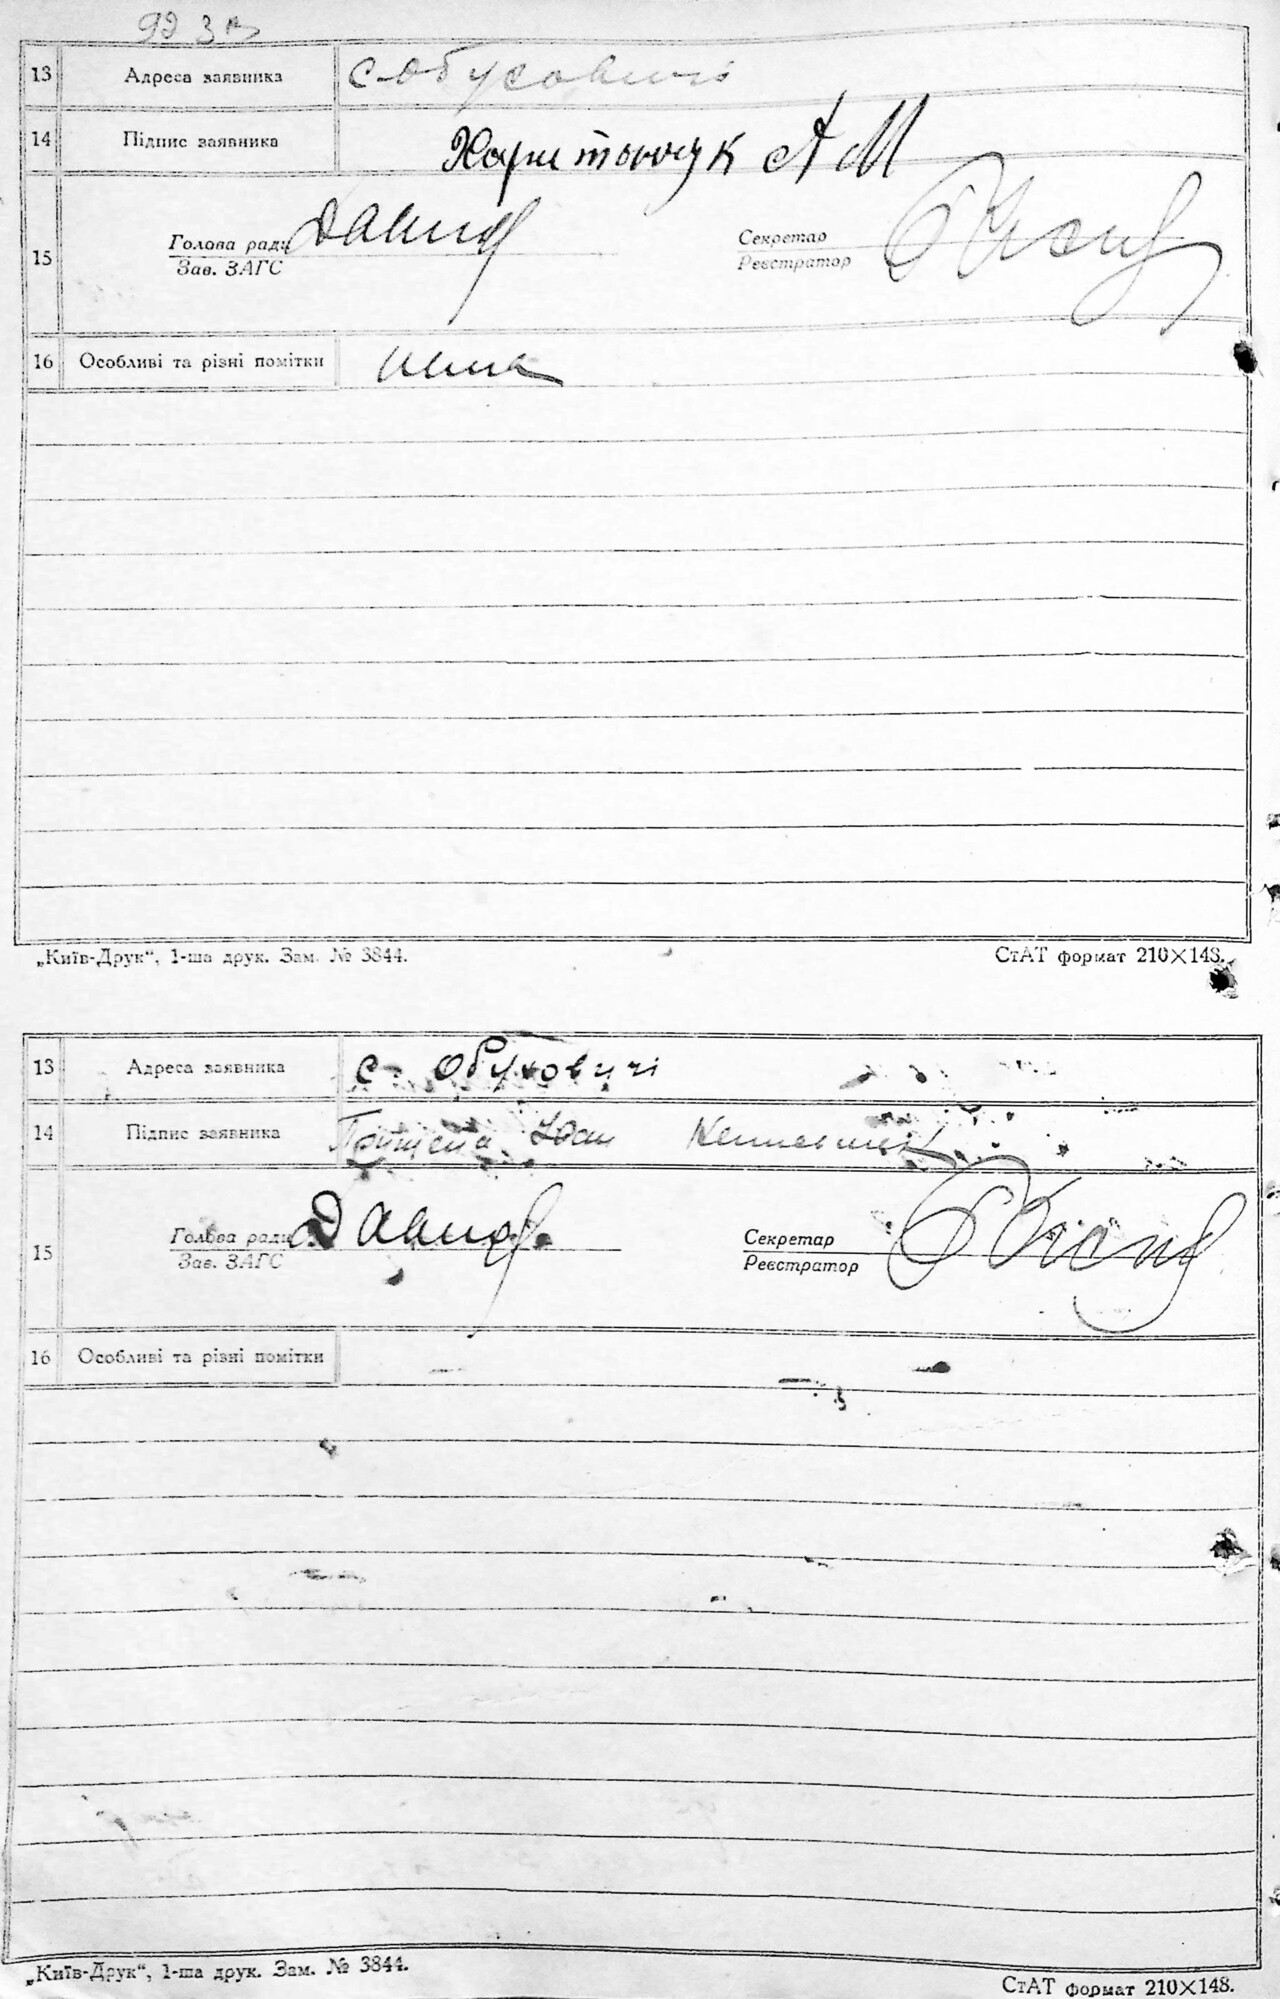 99 зв
13 Адреса заявника с. Обуховичі
14 Підпис заявника Харитончук А М
15 Голова ради Давид Секретар
Зав. ЗАГС Реєстратор
16 Особливі та різні помітки нема
„Київ-Друк“, 1-ша друк. Зам. № 3844. СтАТ формат 210×148.
13 Адреса заявника с. Обуховичі
14 Підпис заявника
15 Голова ради Давид Секретар
Зав. ЗАГС Реєстратор
16 Особливі та різні помітки
„Київ-Друк“, 1-ша друк. Зам. № 3844. СтАТ формат 210×148.